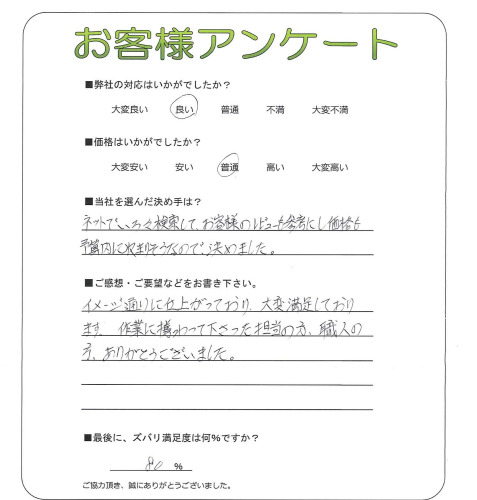 お客様アンケート
■弊社の対応はいかがでしたか？
大変良い 良い 普通 不満 大変不満
■価格はいかがでしたか？
大変安い 安い 普通 高い 大変高い
■当社を選んだ決め手は？
ネットでいろいろ検索して、お客様のレビューを参考にし価格も
予算内に収まりそうなので、決めました。
■ご感想・ご要望などをお書き下さい。
イメージ通りに仕上がっており、大変満足しており
ます。作業に携わって下さった担当の方、職人の
方、ありがとうございました。
■最後に、ズバリ満足度は何％ですか？
80 %
ご協力頂き、誠にありがとうございました。